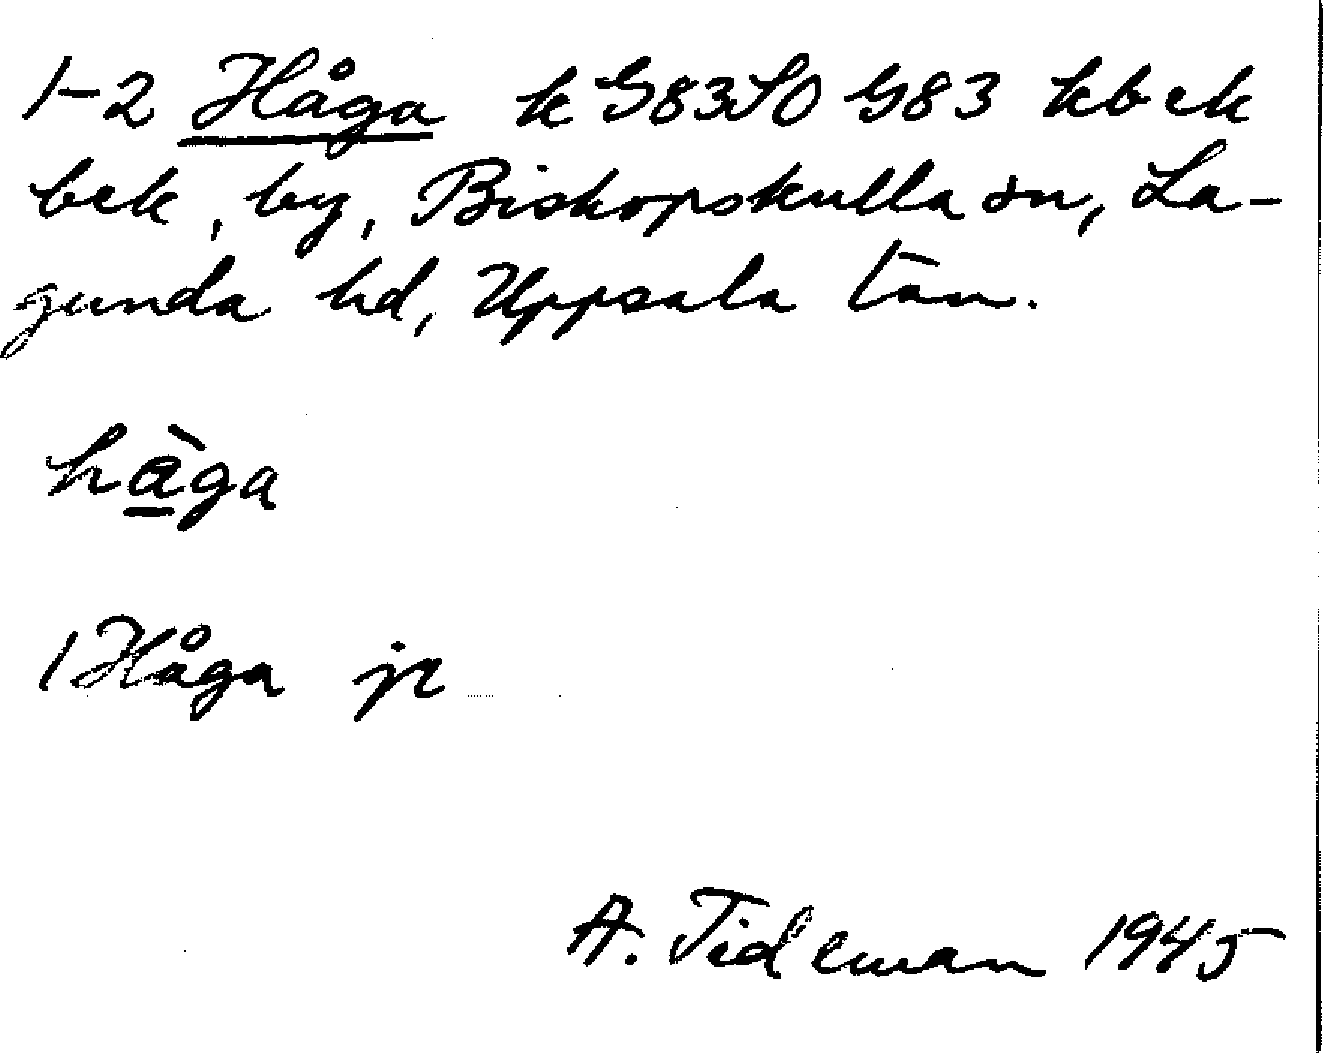 1-2 Håga k G83SO G83 kbek
bek, by, Biskopskulla sn, La-
gunda hd, Uppsala län.
hàga
1 Håga jr
A. Tideman 1945